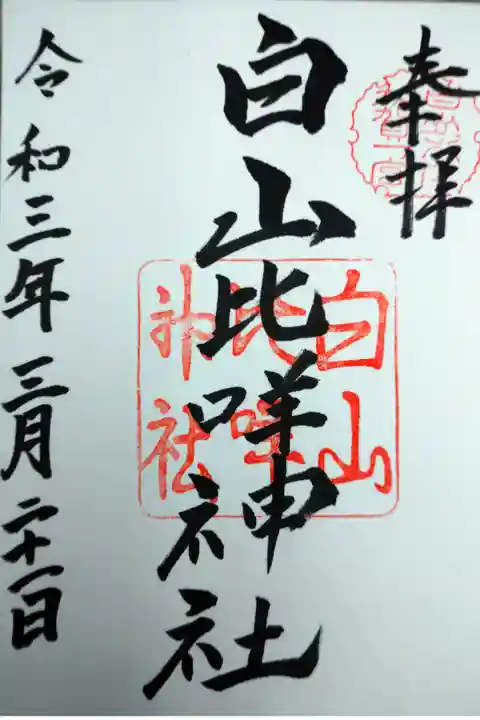 奉拝
白山比咩神社
白山
比咩
神社
令和三年三月二十一日